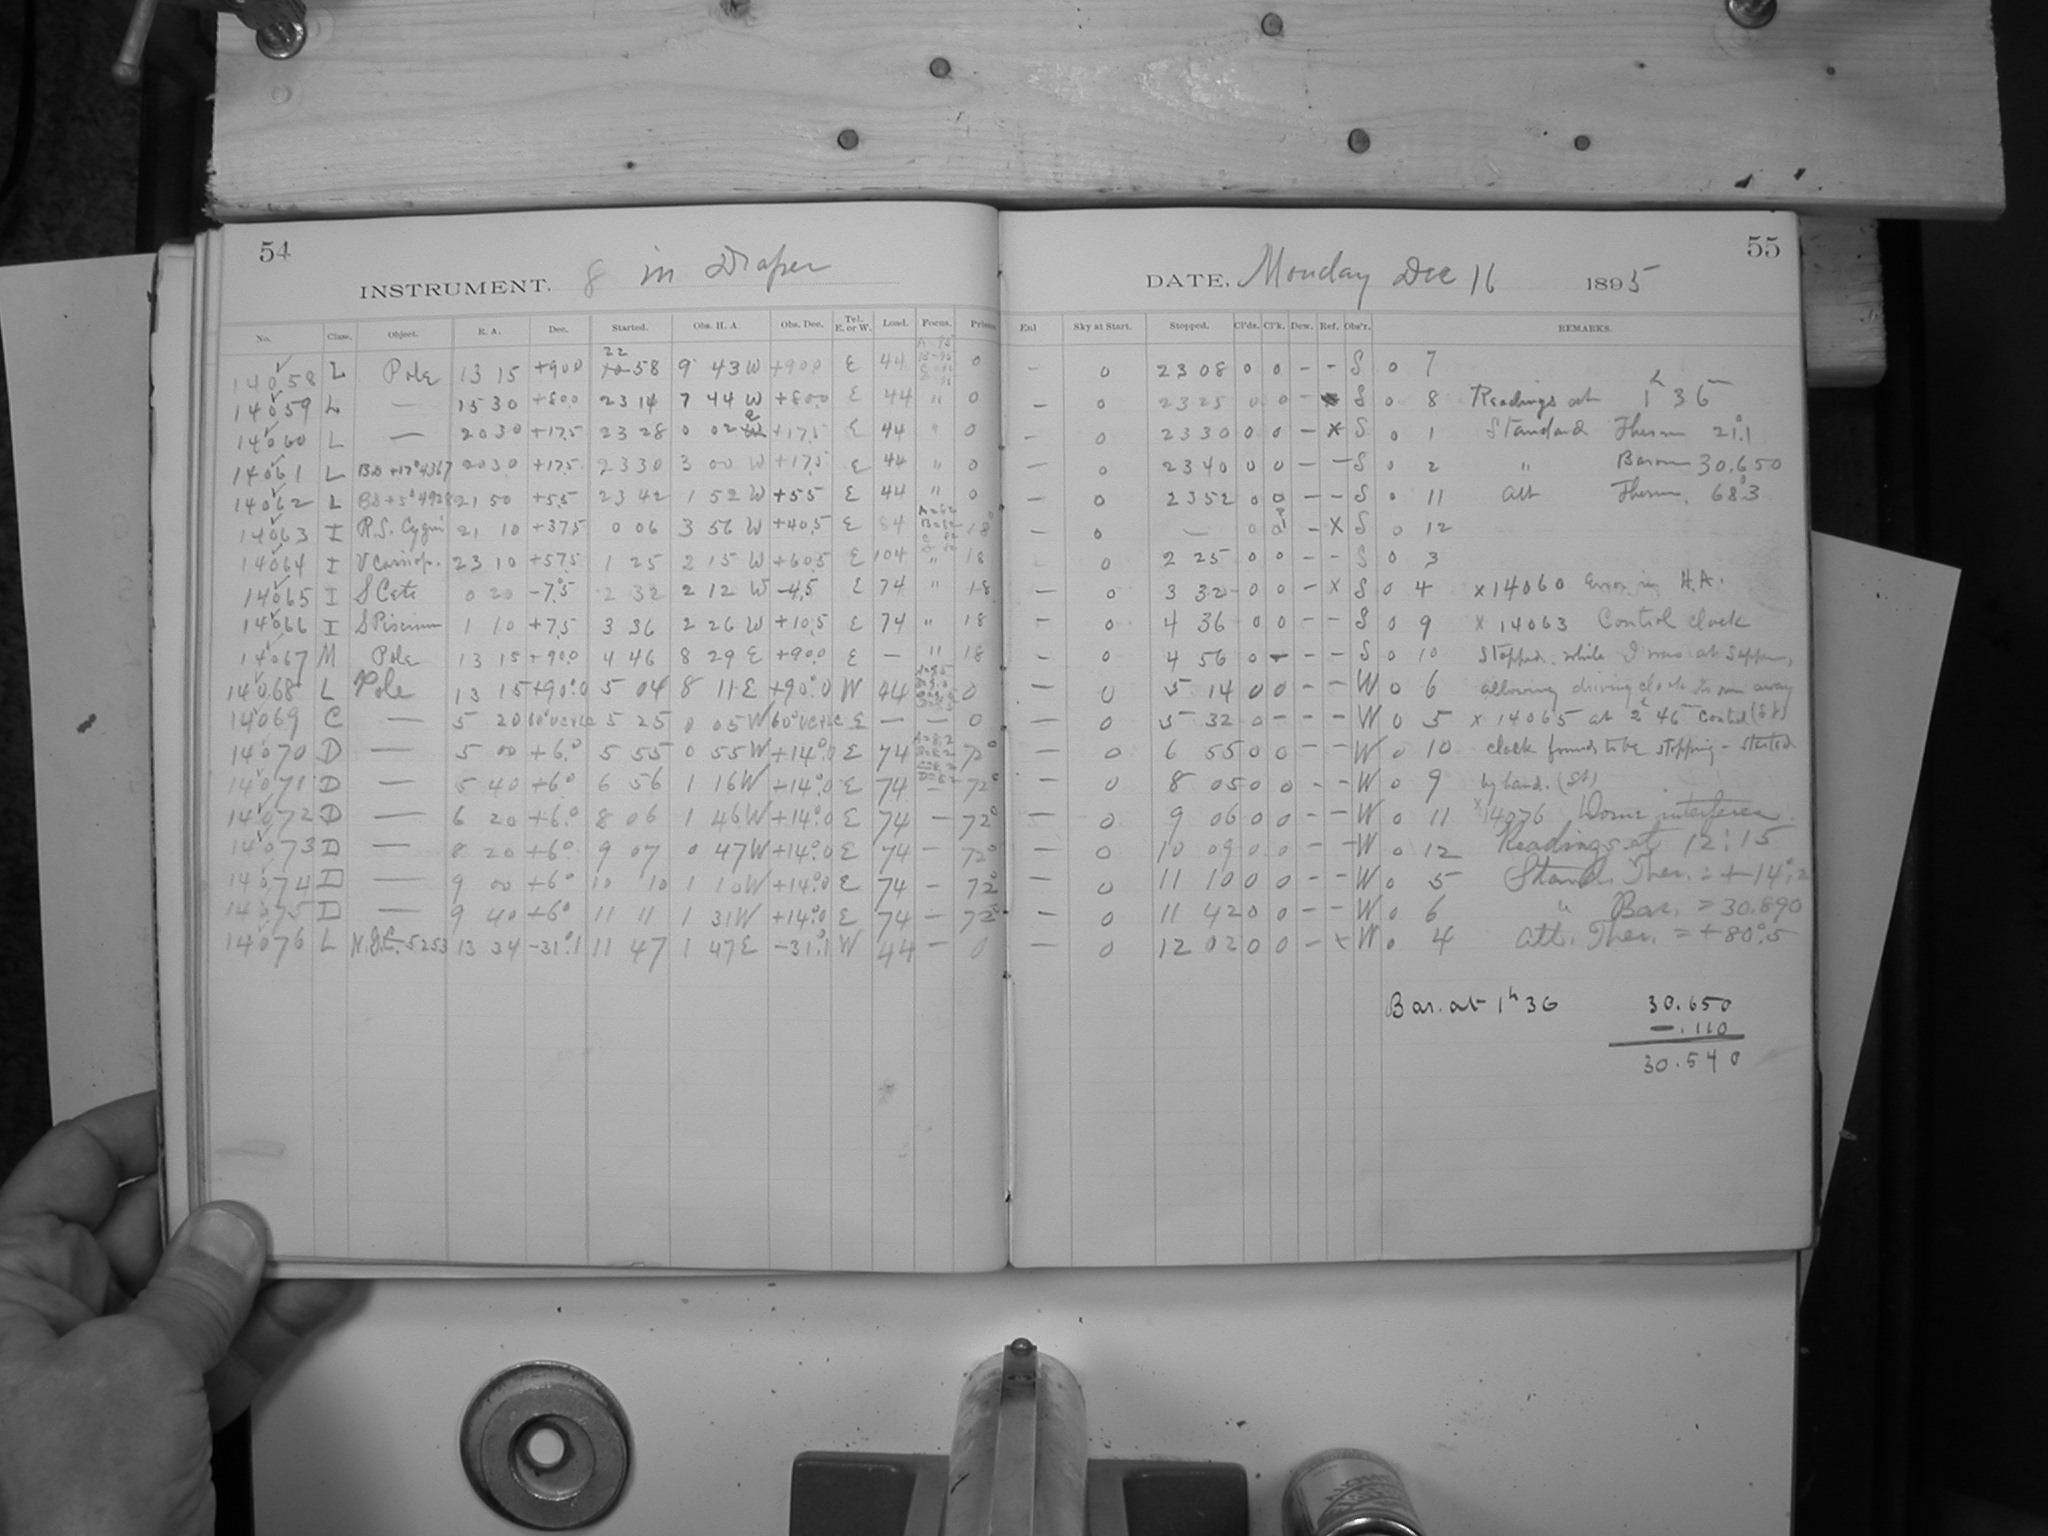 54
INSTRUMENT. 8 in Draper
No. Class. Object. R. A. Dec. Started. Obs. H. A. Obs. Dec. Tel. E. or W. Load. Focus. Prisms
14058 L Pole 13 15 +90.0 22 58 9 43 W +90.0 E 44 0
14059 L — 15 30 +80.0 23 14 7 44 W +80.0 E 44 " 0
14060 L — 20 30 +17.5 23 28 0 02 e +17.5 E 44 " 0
14061 L B.D +17°4367 20 30 +17.5 23 30 3 00 W +17.5 E 44 " 0
14062 L B.D +5°4928 21 50 +5.5 23 42 1 52 W +5.5 E 44 " 0
14063 I R.S. Cygni 21 10 +37.5 0 06 3 56 W +40.5 E 84 A=82 B=82 18°
14064 I V Cassiop. 23 10 +57.5 1 25 2 15 W +60.5 E 104 " 18
14065 I S Ceti 0 20 -7.5 2 32 2 12 W -4.5 E 74 " 18
14066 I S Piscium 1 10 +7.5 3 36 2 26 W +10.5 E 74 " 18
14067 M Pole 13 15 +90.0 4 46 8 29 E +90.0 E — " 18
14068 L Pole 13 15 +90°.0 5 04 8 11 E +90°.0 W 44 0
14069 C — 5 20 5 25 0 05 W E — — 0
14070 D — 5 00 +6.° 5 55 0 55 W +14°.0 E 74 A=8.2 B=8.2 C=8.2 D=8.2 72°
14071 D — 5 40 +6.° 6 56 1 16 W +14°.0 E 74 — 72°
14072 D — 6 20 +6.° 8 06 1 46 W +14°.0 E 74 — 72°
14073 D — 8 20 +6° 9 07 0 47 W +14°.0 E 74 — 72°
14074 D — 9 00 +6° 10 10 1 10 W +14°.0 E 74 — 72°
14075 D — 9 40 +6° 11 11 1 31 W +14°.0 E 74 — 72°
14076 L N.G.C. 5253 13 34 -31°.1 11 47 1 47 E -31°.1 W 44 — 0
55
DATE, Monday Dec 16 1895
Enl Sky at Start. Stopped. Cl'ds. Cl'k. Dew. Ref. Obs'r. REMARKS.
— 0 23 08 0 0 - - S 0 7
— 0 23 25 0 0 - S 0 8 Readings at 1h 36
— 0 23 30 0 0 - x S 0 1 Standard Therm 21.1
— 0 23 40 0 0 - - S 0 2 " Barom 30.650
— 0 23 52 0 0 - - S 0 11 Att Therm. 68.3
— 0 — 0 0 - x S 0 12
0 2 25 0 0 - - S 0 3
— 0 3 32 0 0 - x S 0 4 x 14060 Error in H.A.
— 0 4 36 0 0 - - S 0 9 x 14063 Control clock
— 0 4 56 0 - - - S 0 10 stopped while I was at supper,
— 0 5 14 0 0 - - W 0 6 allowing driving clock to run away
— 0 5 32 0 - - - W 0 5 x 14065 at 2h 46 Control (St)
— 0 6 55 0 0 - - W 0 10 clock found to be stopping - started
— 0 8 05 0 0 - - W 0 9 by hand. (St)
— 0 9 06 0 0 - - W 0 11 x 14076 Dome interferes.
— 0 10 09 0 0 - - W 0 12 Readings at 12:15
— 0 11 10 0 0 - - W 0 5 Stand. Ther. = +14°.2
— 0 11 42 0 0 - - W 0 6 " Bar. = 30.890
— 0 12 02 0 0 - x W 0 4 Att. Ther. = +80°.5
Bar. at 1h 36 30.650
-.110
30.540